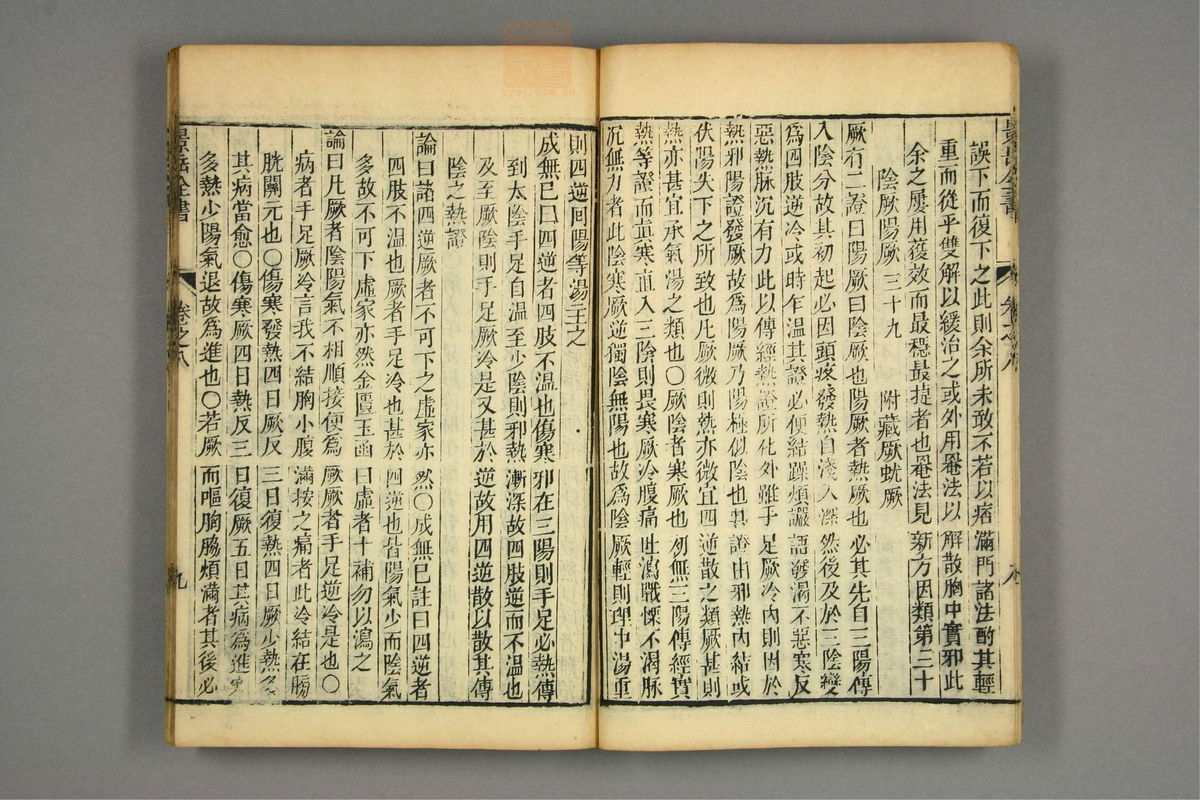 景岳全書
誤下而復下之此則余所未敢不若以痞滿門諸法酌其輕
重而從乎雙解以緩治之或外用罨法以解散胸中實邪此
余之屢用獲效而最穩最捷者也罨法見新方因類第三十
陰厥陽厥三十九 附藏厥蚘厥
厥有二證曰陽厥曰陰厥也陽厥者熱厥也必其先自三陽傳
入陰分故其初起必因頭疼發熱自淺入深然後及於三陰變
爲四肢逆冷或時乍溫其證必便結躁煩譫語發渴不惡寒反
惡熱脉沉有力此以傳經熱證所化外雖手足厥冷內則因於
熱邪陽證發厥故爲陽厥乃陽極似陰也其證由邪熱內結或
伏陽失下之所致也凡厥微則熱亦微宜四逆散之類厥甚則
熱亦甚宜承氣湯之類也〇厥陰者寒厥也初無三陽傳經實
熱等證而眞寒直入三陰則畏寒厥冷腹痛吐瀉戰慄不渴脉
沉無力者此陰寒厥逆獨陰無陽也故爲陰厥輕則理中湯重
則四逆回陽等湯主之
成無已曰四逆者四肢不溫也傷寒邪在三陽則手足必熱傳
到太陰手足自溫至少陰則邪熱漸深故四肢逆而不溫也
及至厥陰則手足厥冷是又甚於逆故用四逆散以散其傳
陰之熱證
論曰諸四逆厥者不可下之虛家亦然〇成無已註曰四逆者
四肢不溫也厥者手足冷也甚於四逆也皆陽氣少而陰氣
多故不可下虛家亦然金匱玉函曰虛者十補勿以瀉之
論曰凡厥者陰陽氣不相順接便爲厥厥者手足逆冷是也〇
病者手足厥冷言我不結胸小腹滿按之痛者此冷結在膀
胱關元也〇傷寒發熱四日厥反三日復熱四日厥少熱多
其病當愈〇傷寒厥四日熱反三日復厥五日其病爲進寒
多熱少陽氣退故爲進也〇若厥而嘔胸脇煩滿者其後必
景岳全書
卷之八
九